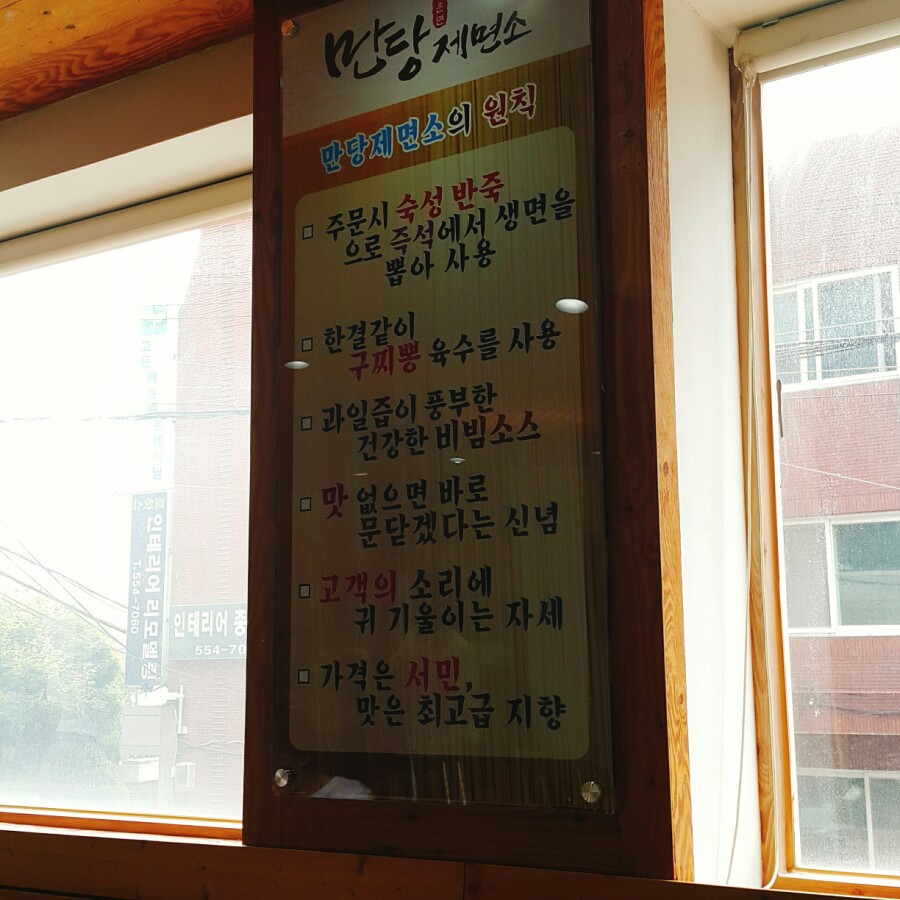 만당제면소
만당제면소의 원칙
주문시 숙성 반죽
으로 즉석에서 생면을
뽑아 사용
한결같이
구찌뽕 육수를 사용
과일즙이 풍부한
건강한 비빔소스
맛 없으면 바로
문닫겠다는 신념
고객의 소리에
귀 기울이는 자세
가격은 서민,
맛은 최고급 지향
인테리어 리모델링
T.554-7060
인테리어 종
554-70